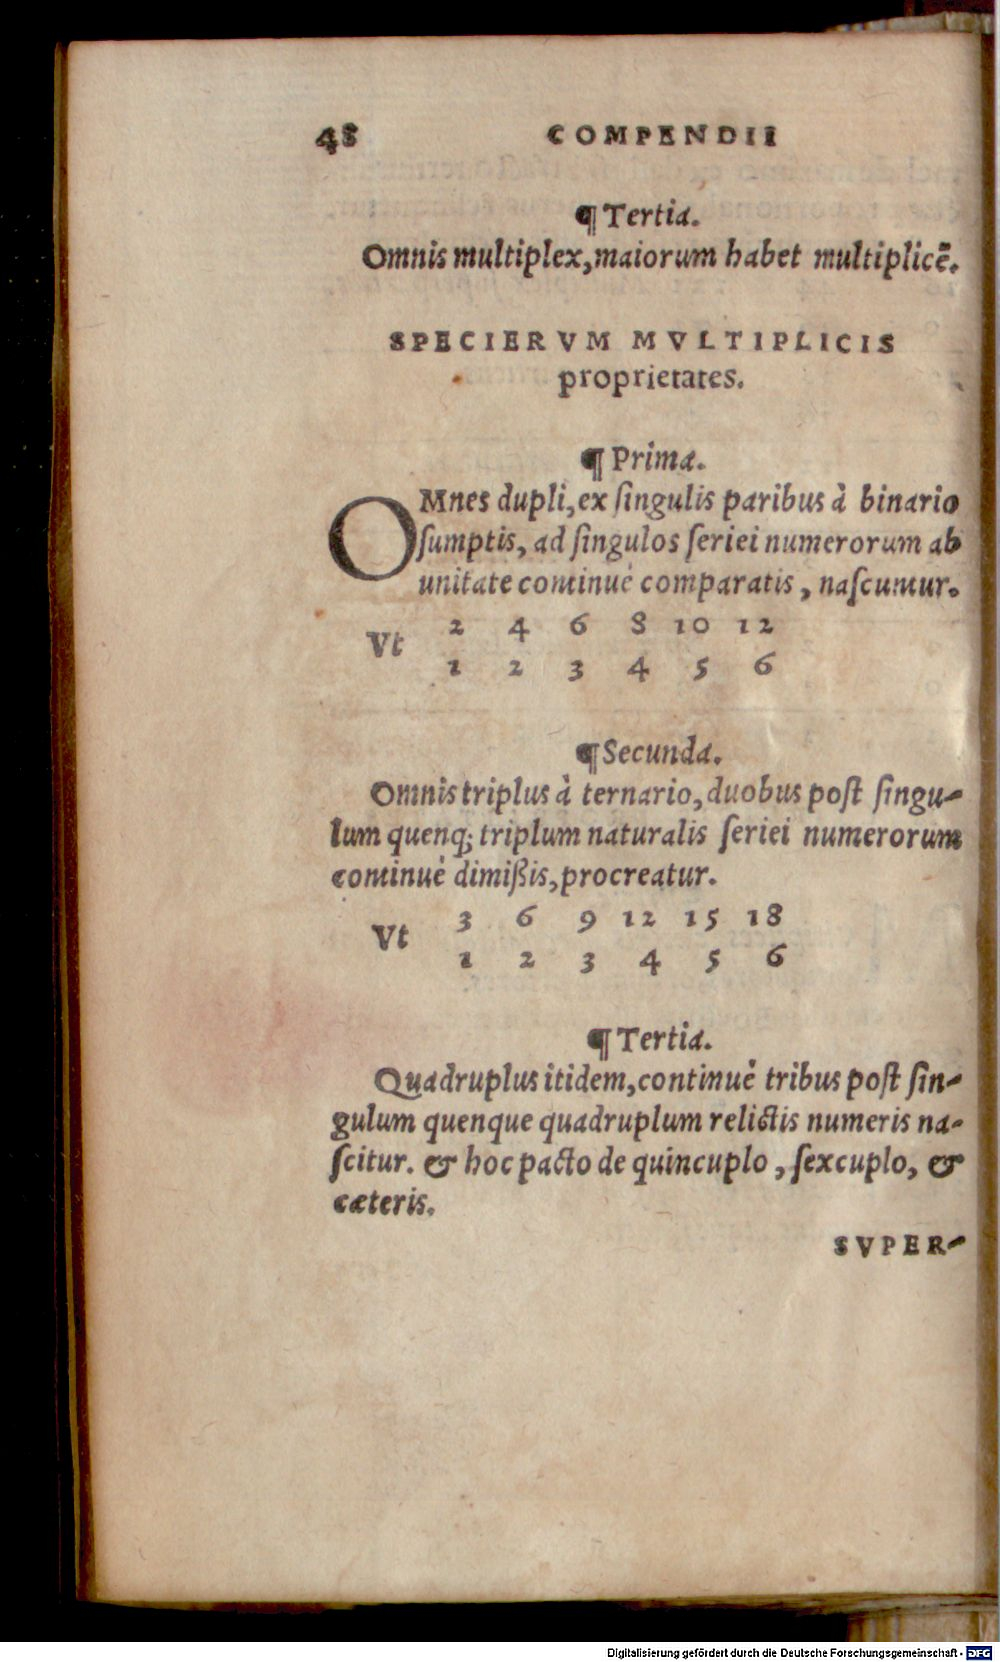 48 COMPENDII
¶ Tertia.
Omnis multiplex, maiorum habet multiplicē.
SPECIERVM MVLTIPLICIS
proprietates.
¶ Prima.
OMnes dupli, ex ſingulis paribus à binario
ſumptis, ad ſingulos ſeriei numerorum ab
unitate continué comparatis, naſcuntur.
2 4 6 8 10 12
Vt
1 2 3 4 5 6
¶ Secunda.
Omnis triplus à ternario, duobus poſt ſingu-
lum quenq; triplum naturalis ſeriei numerorum
continuè dimißis, procreatur.
3 6 9 12 15 18
Vt
1 2 3 4 5 6
¶ Tertia.
Quadruplus itidem, continuè tribus poſt ſin-
gulum quenque quadruplum relictis numeris na-
ſcitur. & hoc pacto de quincuplo, ſexcuplo, &
cæteris.
SVPER-
Digitalisierung gefördert durch die Deutsche Forschungsgemeinschaft - DFG